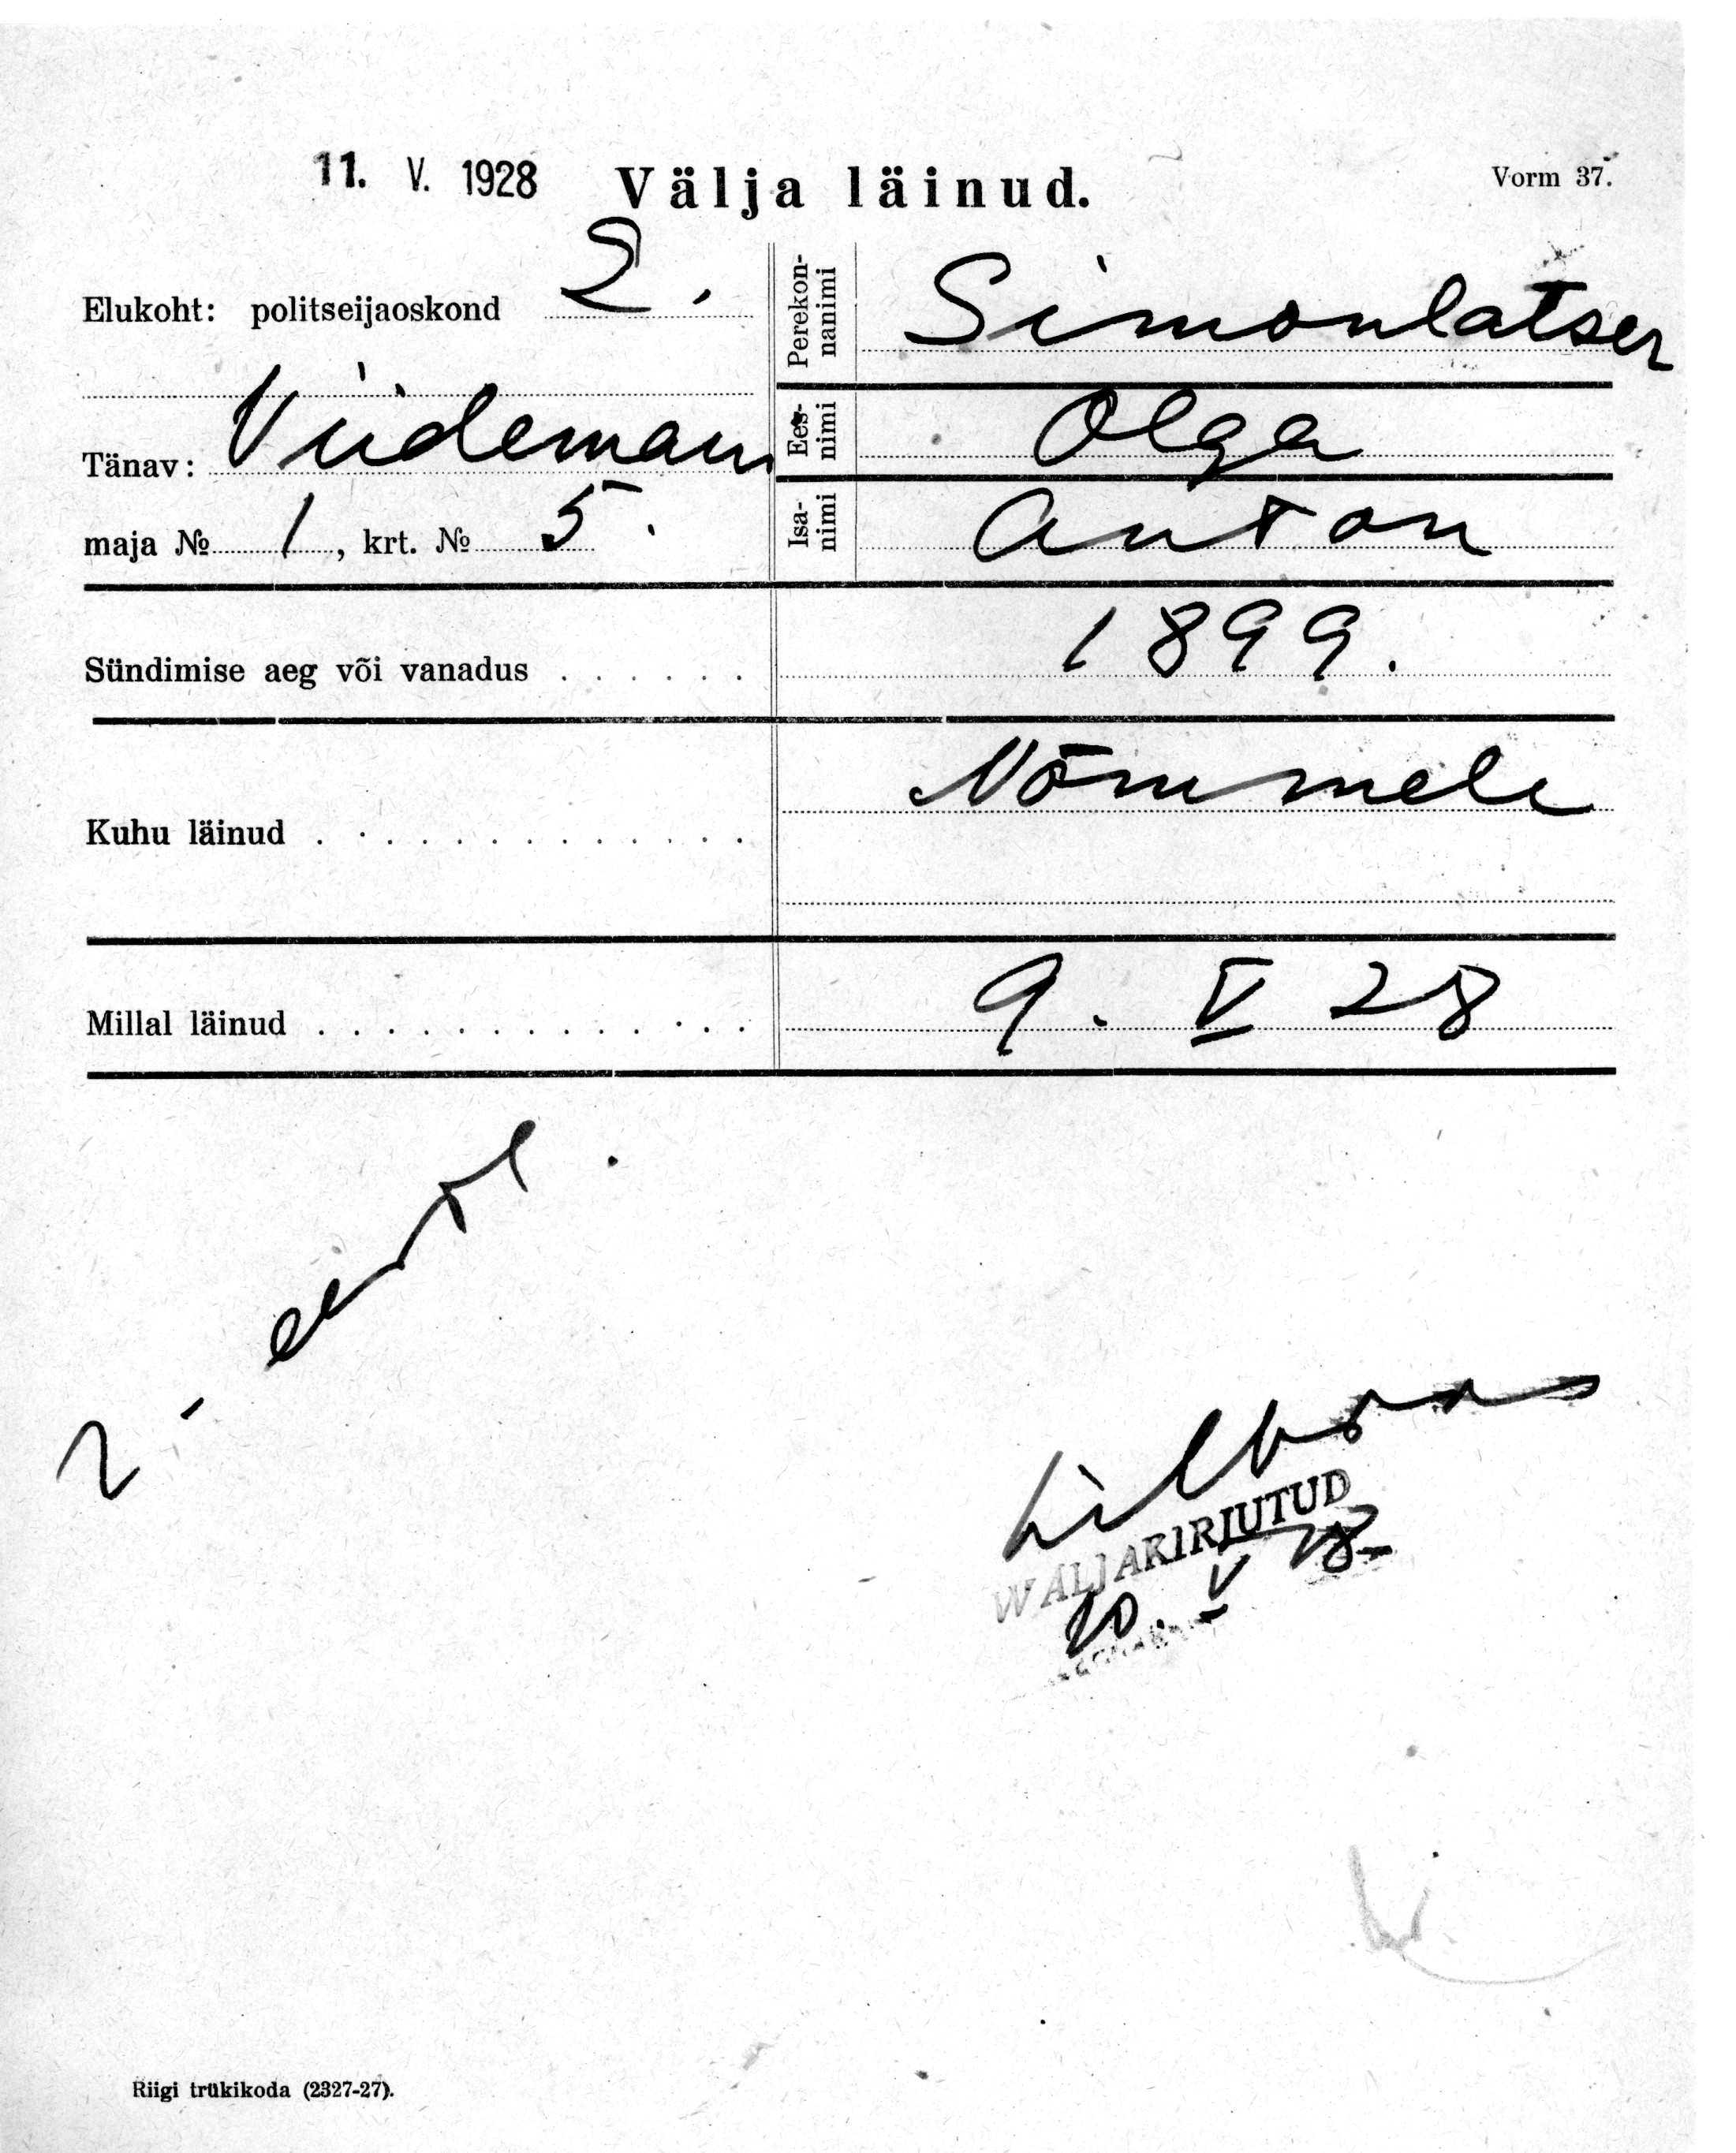 11. V. 1928 Välja läinud. Vorm 37.
Elukoht: politseijaoskond 2.
Tänav: Viidemann
maja № 1, krt. № 5.
Perekonnanimi Simonlatser
Eesnimi Olga
Isanimi Anton
Sündimise aeg või vanadus 1899.
Kuhu läinud Nõmmele
Millal läinud 9. V 28
WALJAKIRJUTUD
10. V 28
Riigi trükikoda (2327-27).